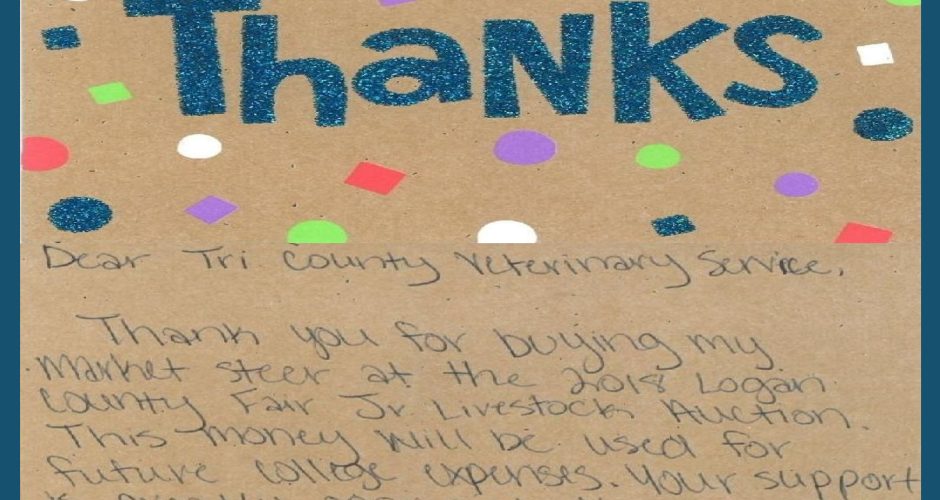 Thanks
Dear Tri County Veterinary Service,
Thank you for buying my
market steer at the 2018 Logan
County Fair Jr. Livestock Auction.
This money will be used for
future college expenses. Your support